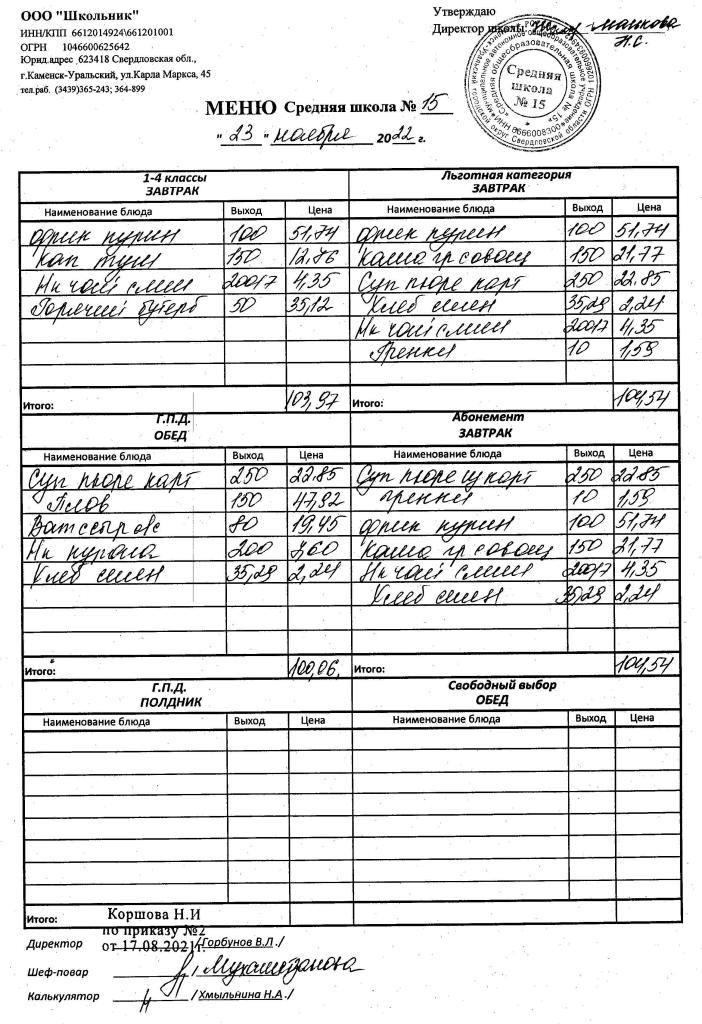 ООО "Школьник"
ИНН/КПП 6612014924\661201001
ОГРН 1046600625642
Юрид.адрес 623418 Свердловская обл.,
г.Каменск-Уральский, ул.Карла Маркса, 45
тел.раб. (3439)365-243; 364-899
Утверждаю
Директор школы Маикова
Н.С.
Средняя школа № 15
МЕНЮ Средняя школа № 15
"23" ноября 2022 г.
1-4 классы
ЗАВТРАК
Наименование блюда Выход Цена
фрик курин 100 51,74
Кап туш 150 12,76
Нк чай слим 200/7 4,35
Горячий бутерб 50 35,12
Итого: 103,97
Льготная категория
ЗАВТРАК
Наименование блюда Выход Цена
фрик курин 100 51,74
Каша гр с овощ 150 21,77
Суп пюре карт 250 22.85
Хлеб смен 35,29 2,24
Нк чай слим 200/7 4,35
Гренки 10 1,59
Итого: 104,54
Г.П.Д.
ОБЕД
Наименование блюда Выход Цена
Суп пюре карт 250 22.85
Плов 150 47,92
80 19,45
Нк кураги 200 7,60
Хлеб смен 35,29 2,24
Итого: 100,06.
Абонемент
ЗАВТРАК
Наименование блюда Выход Цена
Суп пюре из карт 250 22.85
гренки 10 1,59
фрик курин 100 51,74
Каша гр с овощ 150 21,77
Нк чай слим 200/7 4,35
Хлеб смен 35,29 2,24
Итого: 104,54
Г.П.Д.
ПОЛДНИК
Наименование блюда Выход Цена
Итого:
Свободный выбор
ОБЕД
Наименование блюда Выход Цена
Коршова Н.И
по приказу №2
от 17.08.2021г.
Директор /Горбунов В.Л./
Шеф-повар / Мухаметзанова
Калькулятор / Хмыльнина Н.А./